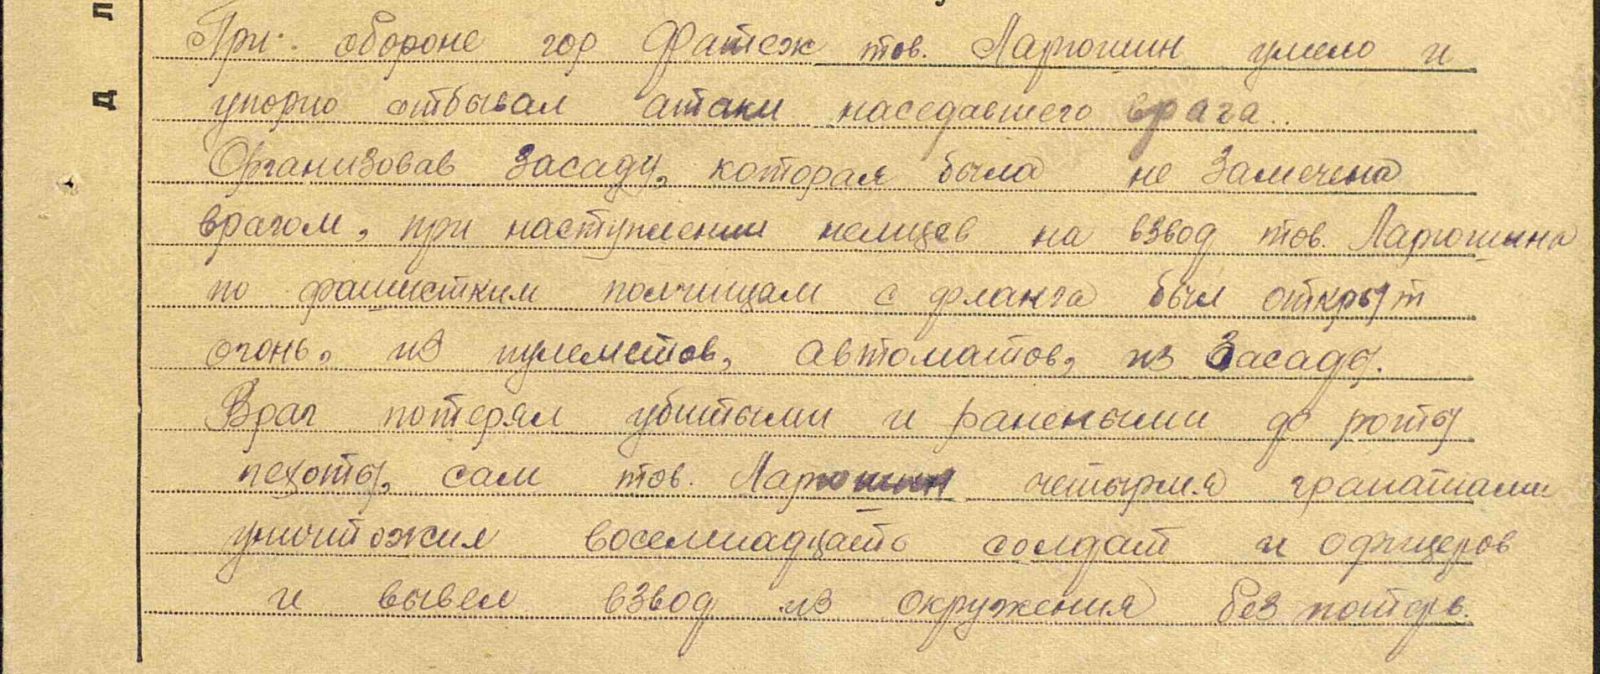 При обороне гор Фатеж тов. Ларюшин умело и
упорно отбывал атаки наседавшего врага.
Организовав засаду, которая была не замечена
врагом, при наступлении немцев на взвод тов. Ларюшина
по фашистким полчищам с фланга был открыт
огонь, из пулеметов, автоматов, из засады.
Враг потерял убитыми и ранеными до роты
пехоты, сам тов. Ларюшин четырмя гранатами
уничтожил восемнадцать солдат и офицеров
и вывел взвод из окружения без потерь.